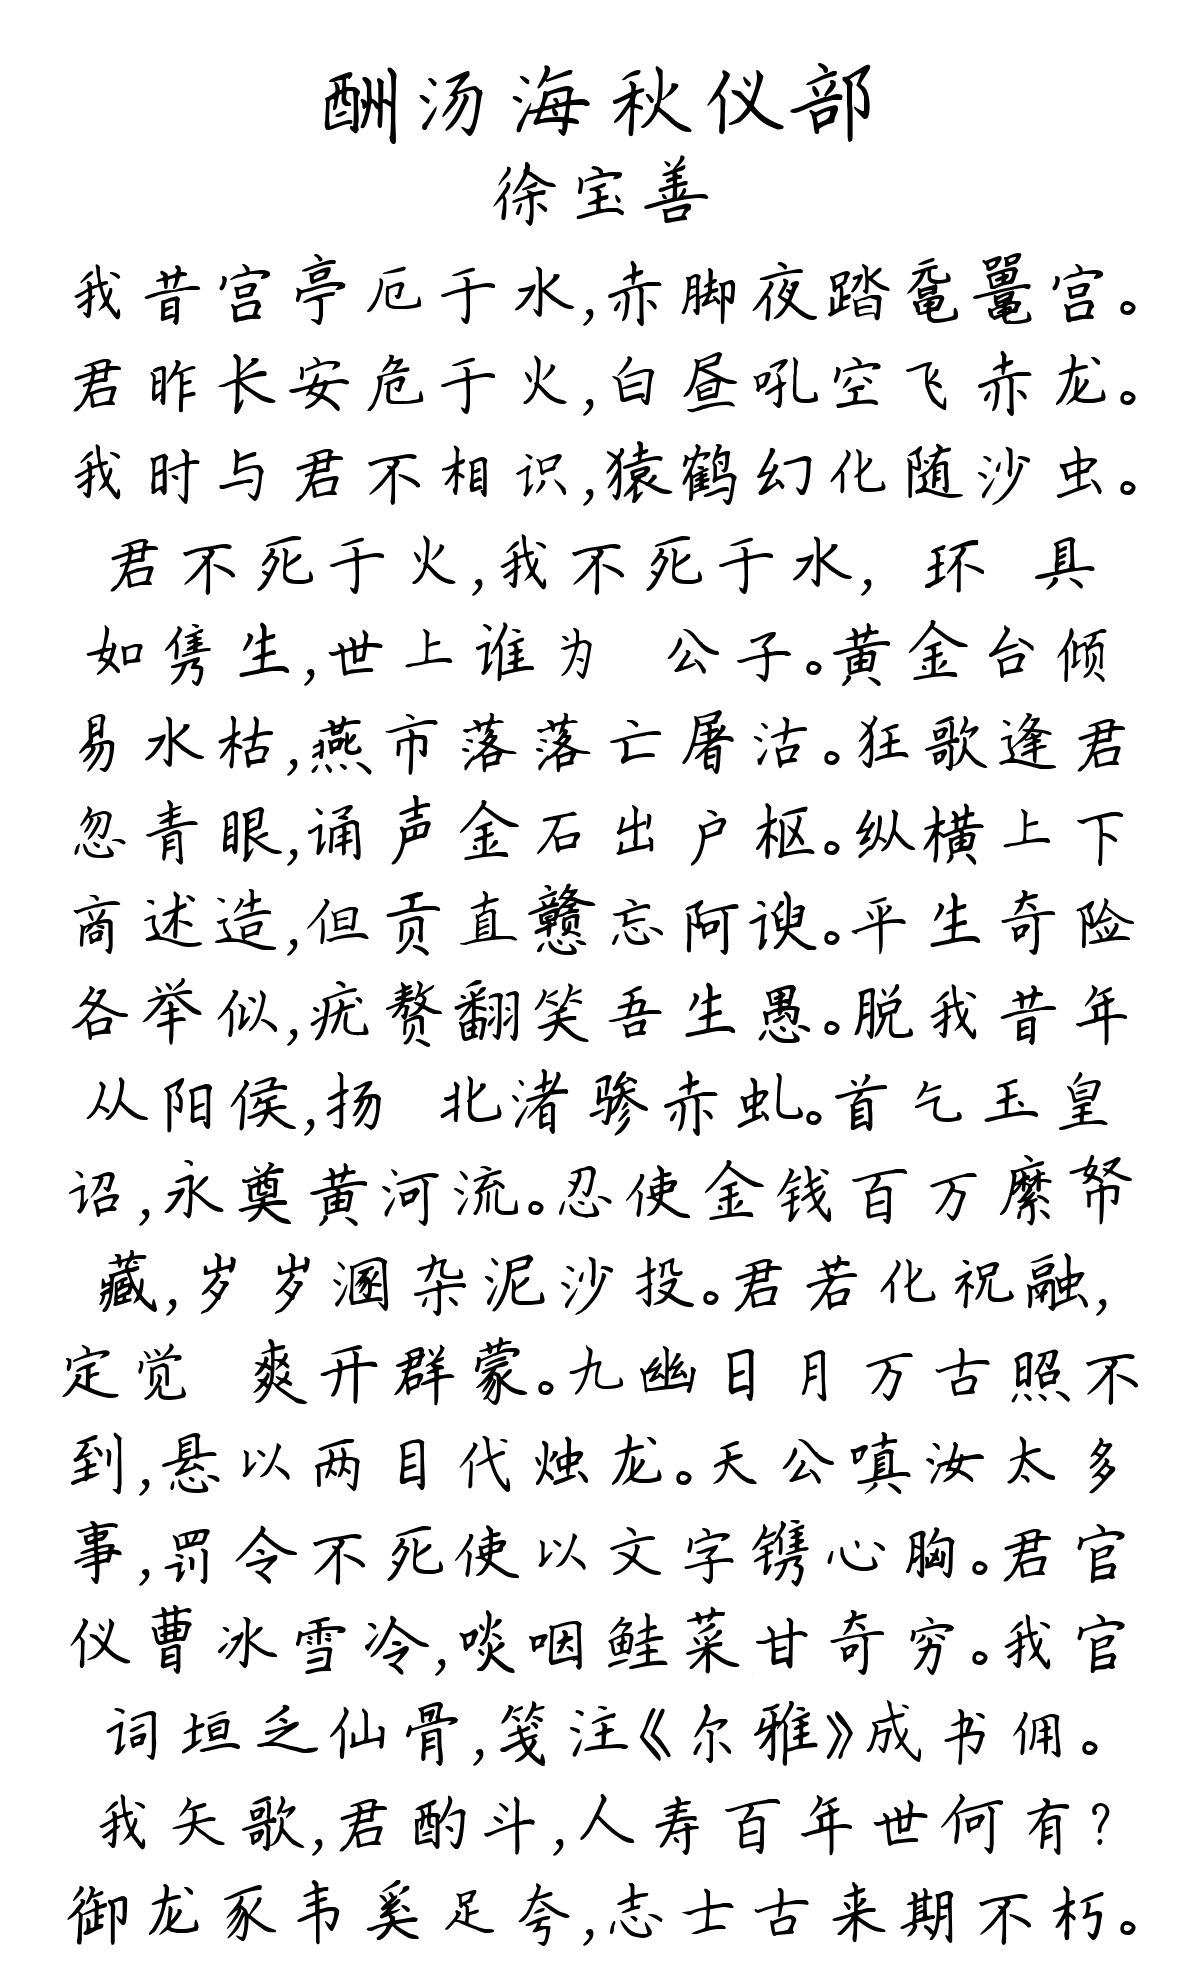 酬汤海秋仪部
徐宝善
我昔宫亭厄于水,赤脚夜踏鼋鼍宫。
君昨长安危于火,白昼吼空飞赤龙。
我时与君不相识,猿鹤幻化随沙虫。
君不死于火,我不死于水, 环 具
如隽生,世上谁为 公子。黄金台倾
易水枯,燕市落落亡屠沽。狂歌逢君
忽青眼,诵声金石出户枢。纵横上下
商述造,但贡直戆忘阿谀。平生奇险
各举似,疣赘翻笑吾生愚。脱我昔年
从阳侯,扬 北渚骖赤虬。首乞玉皇
诏,永奠黄河流。忍使金钱百万縻帑
藏,岁岁溷杂泥沙投。君若化祝融,
定觉 爽开群蒙。九幽日月万古照不
到,悬以两目代烛龙。天公嗔汝太多
事,罚令不死使以文字镌心胸。君官
仪曹冰雪冷,啖咽鲑菜甘奇穷。我官
词垣乏仙骨,笺注《尔雅》成书佣。
我矢歌,君酌斗,人寿百年世何有?
御龙豕韦奚足夸,志士古来期不朽。